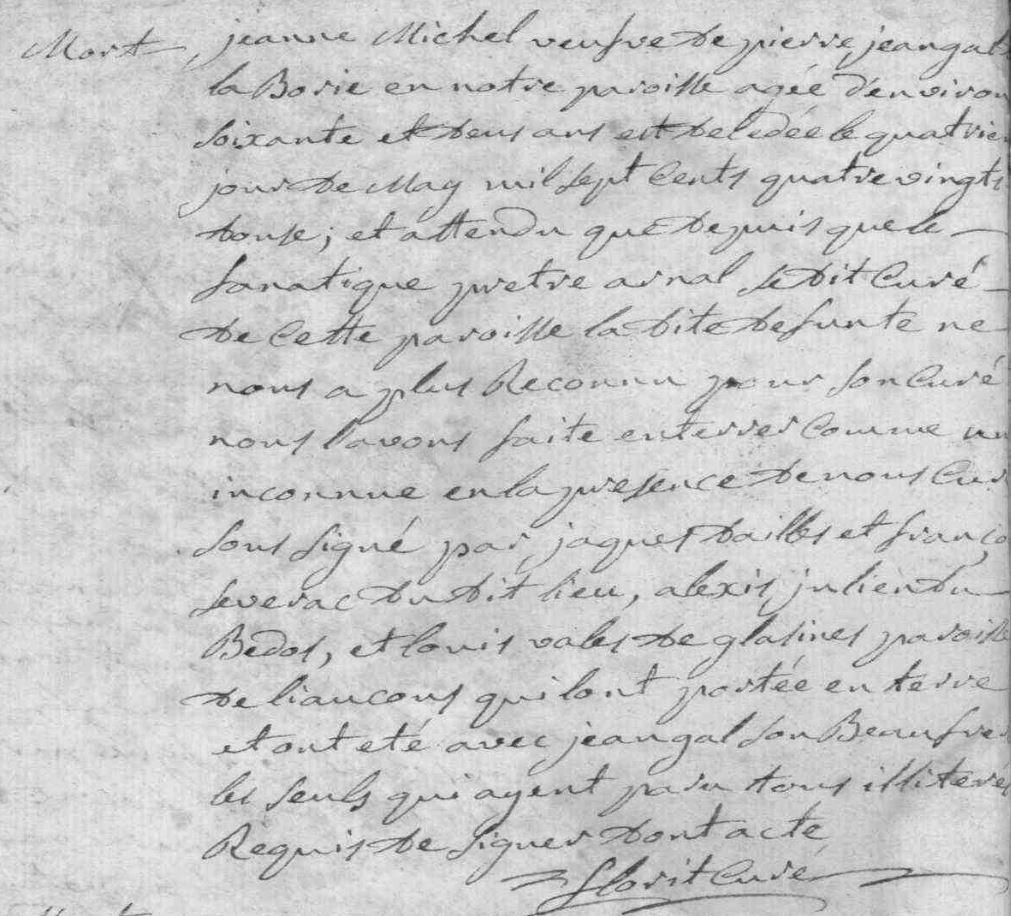 Mort jeanne Michel veufve de pierre jeangal
la Borie en notre paroisse agée d'environ
soixante et deus ans est decedée le quatrie
jour de May mil sept cents quatre vingts
douse; et attendu que depuis que le
fanatique pretre arnal se dit curé
de cette paroisse la dite defunte ne
nous a plus Reconnu pour son curé
nous l'avons faite enterrer comme un
inconnue en la presence de nous cur
sous signé par jaques dailles et franço
severac du dit lieu, alexis julien du
Bedos, et louis vales de glasines paroisse
de liaucous qui lont portée en terre
et ont eté avec jeangal son Beaufre
les seuls qui ayent paru tous illiterés
Requis de signer dont acte
florit curé